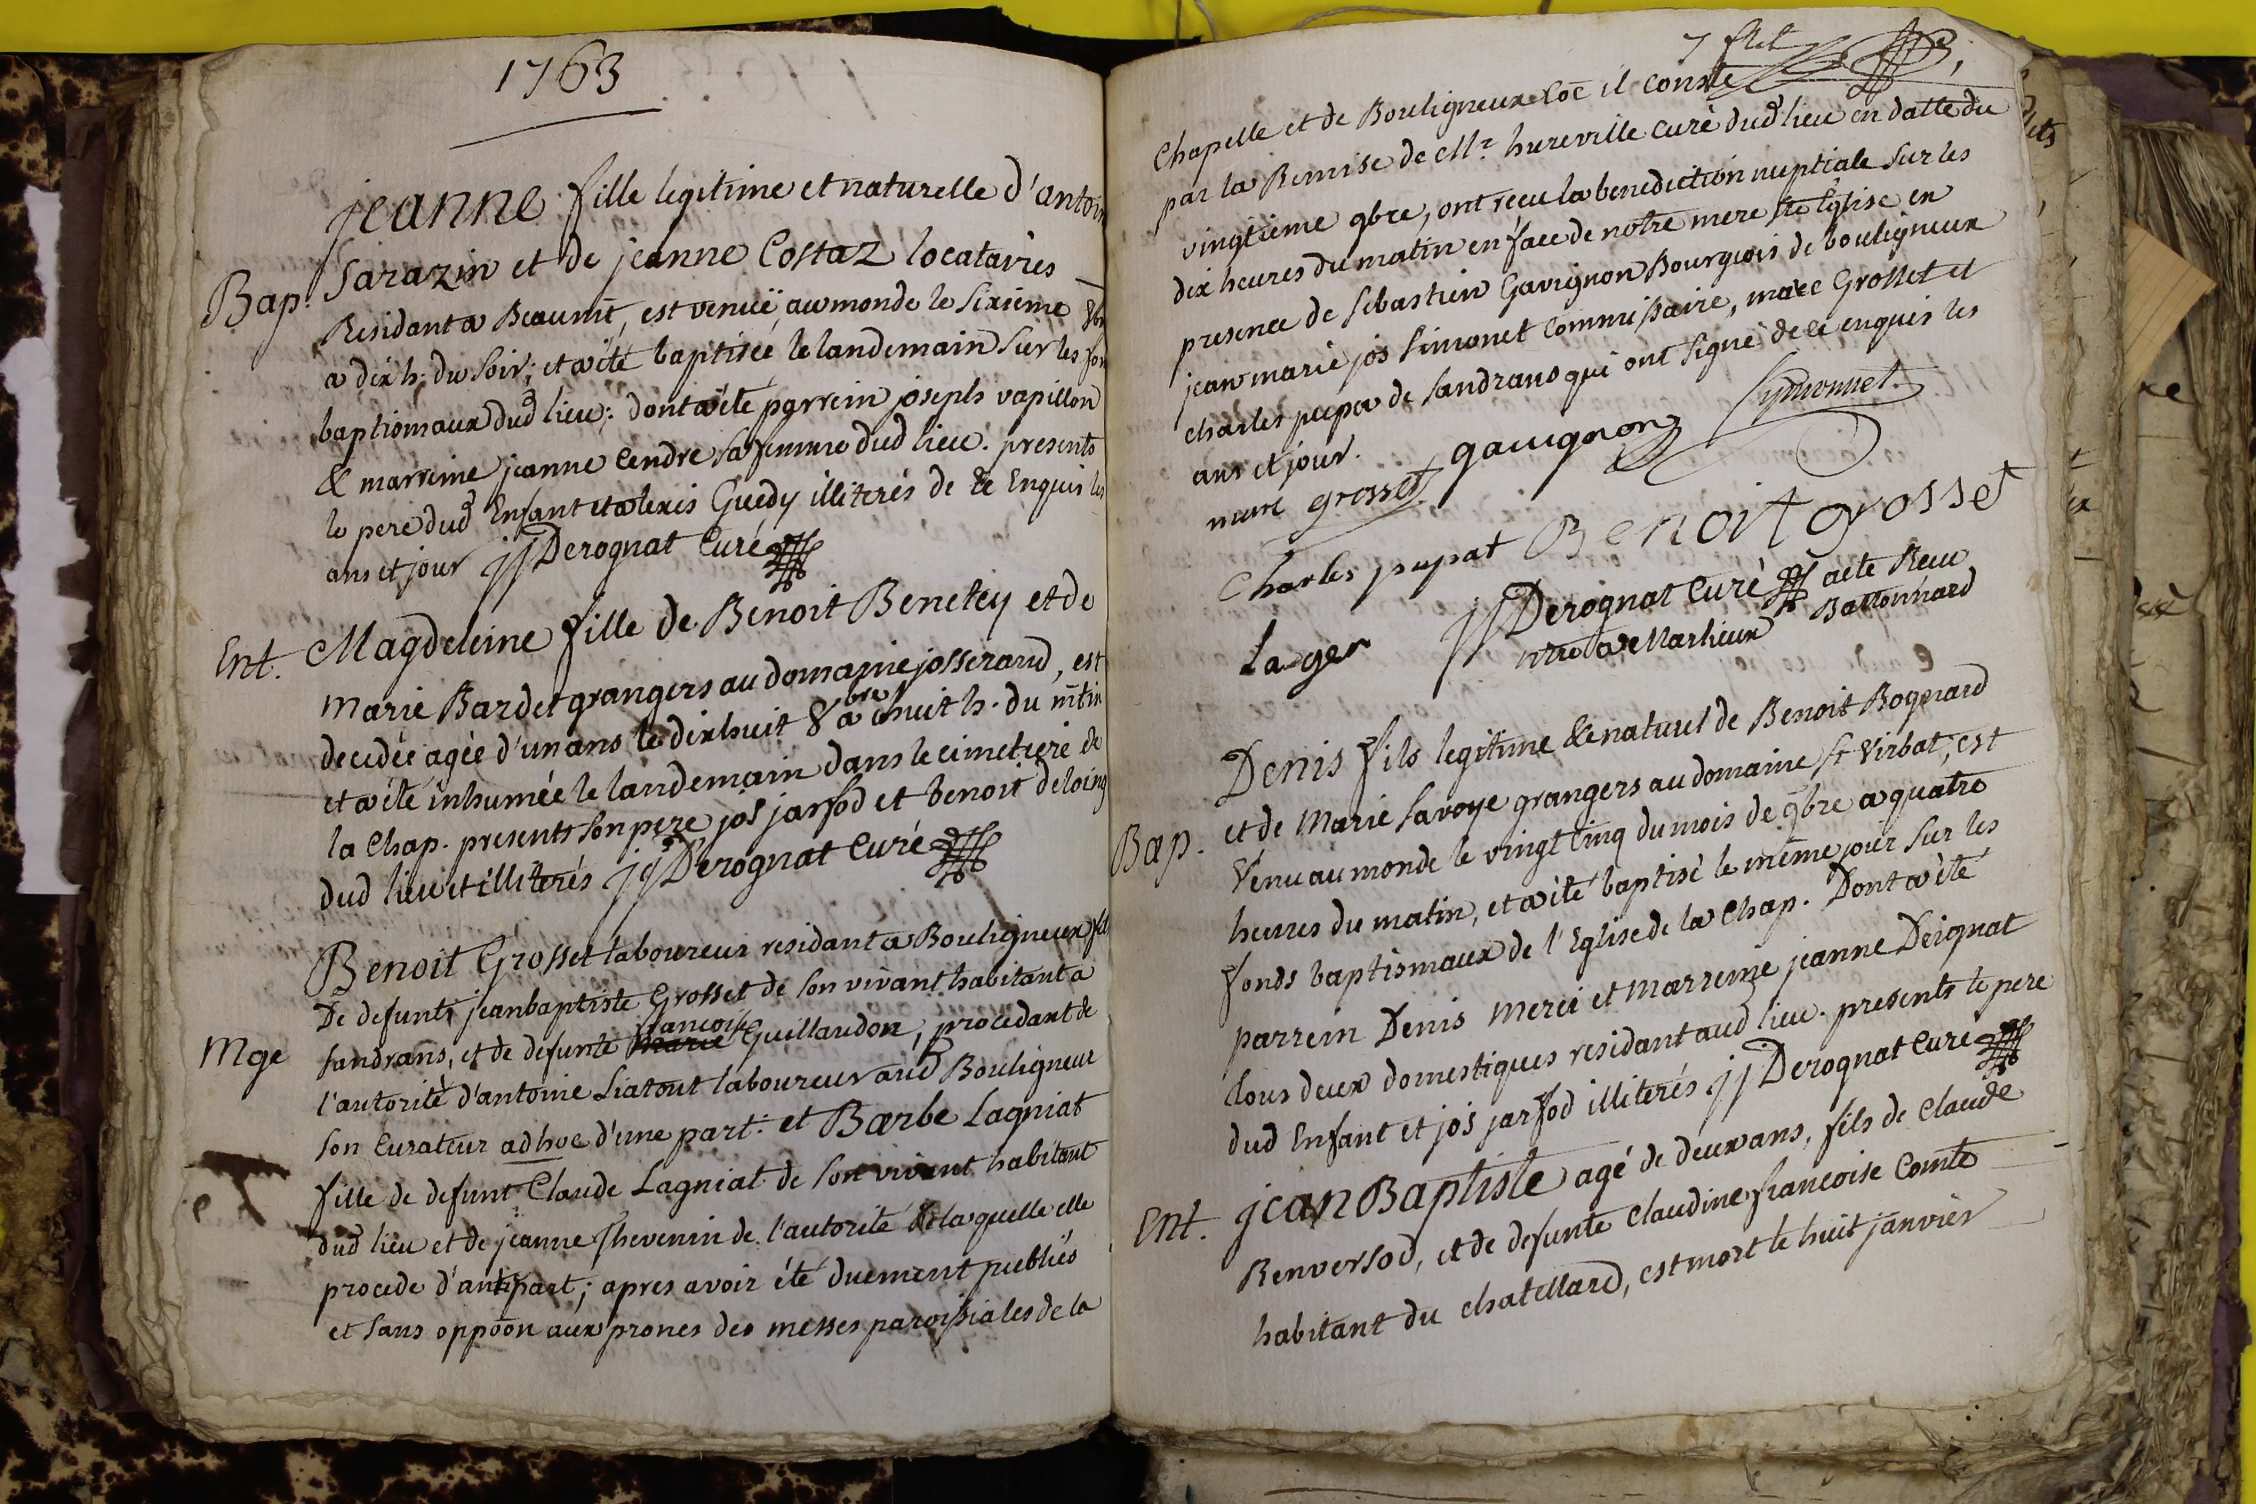 1763
jeanne fille legitime et naturelle d'antoin
Bap. Sarazin et de jeanne Costaz locataires
Residant a Beaumt, est venuë au monde le Sixieme 8br
a dix h. du Soir; et a été baptisée le landemain Sur les fon
baptismaux dud lieu: dont a été parrein joseph vapillon
& marreine jeanne Cendre sa femme dud lieu. presents
le pere dud Enfant et alexis Guedy illiterés de ce Enquis les
ans et jour jj Derognat Curé
Ent. Magdeleine fille de Benoit Benetey et de
Marie Bardet grangers au domaine josserand, est
decedée agée d'un ans le dixhuit 8bre a huit h. du mtin
et a été inhumée le landemain dans le cimetiere de
la Chap. presents Son pere jos jarsod et benoit deloing
dud lieu et illiterés jj Derognat Curé
Benoit Grosset laboureur residant a Bouligneux fils
De defunt jeanbaptiste Grosset de Son vivant habitant a
Mge Sandrans, et de defunte francoise Guillaudon, procedant de
l'autorité d'antoine Liatout laboureur aud Bouligneux
Son Curateur adhoc d'une part. et Barbe Lagniat
fille de defunt Claude Lagniat de Son vivant habitant
dud lieu et de jeanne Thevenin de l'autorité de laquelle elle
procede d'autr part; apres avoir été duement publiés
et Sans oppoōn aux prones des messes paroissiales de la
7 flet
Chapelle et de Bouligneux Coē il Conste
par la Remise de Mr. hureville Curé dud lieu en datte du
vingtieme 9bre, ont recu la benediction nuptiale Sur les
dix heures du matin en face de notre mere Ste Eglise en
presence de Sebastien Gavignon Bourgeois de bouligneux
jean marie jos Simonet Commissaire, marc Grosset et
charles pupa de Sandrans qui ont Signé de ce enquis les
ans et jour.
marc grosset gauignon Symonnet
Charles pupat Benoit grosset
jj Derognat Curé acte Recu
Lauger ntre a Marlieux Battonnard
Denis fils legitime & naturel de Benoit Bognard
et de Marie Savoye grangers au domaine St Virbat, est
Bap. Venu au monde le vingt cinq du mois de 9bre a quatre
heures du matin, et a été baptisé le même jour Sur les
fonds baptismaux de l'Eglise de la Chap. Dont a été
parrein Denis Merci et Marreine jeanne Deignat
tous deux domestiques residant aud lieu. presents le pere
dud Enfant et jos jarsod illiterés jj Derognat Curé
Ent. jean Baptiste agé de deux ans, fils de Claude
Renversod, et de defunte Claudine francoise Comte
habitant du chatellard, est mort le huit janvier